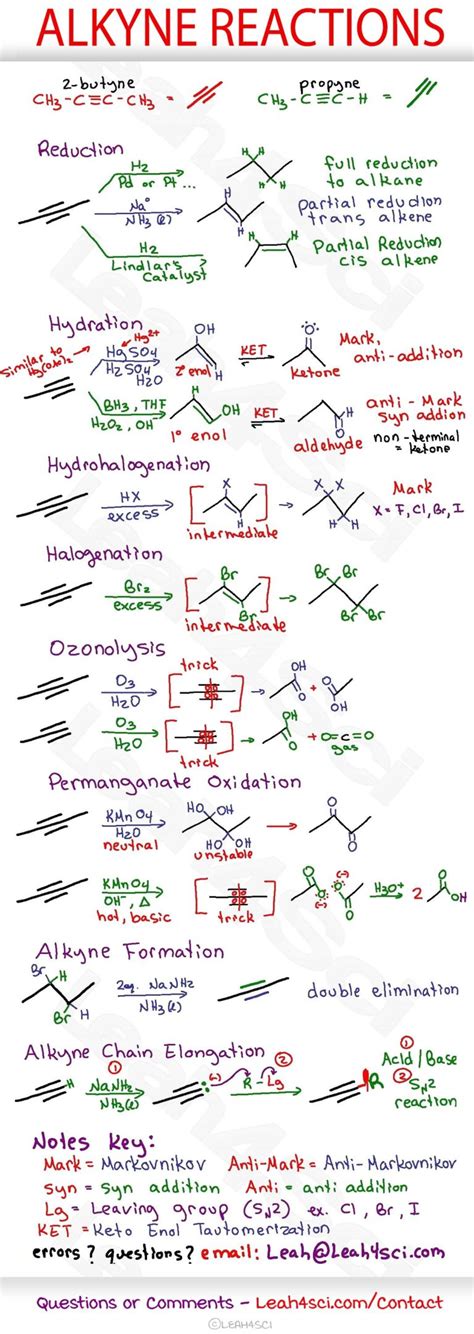 ALKYNE REACTIONS
2-butyne
CH₃-C≡C-CH₃ =
propyne
CH₃-C≡C-H =
Reduction
H₂
Pd or Pt...
H H
H H
full reduction
to alkane
Na°
NH₃ (ℓ)
H
H
partial reduction
trans alkene
H₂
Lindlar's
Catalyst
?
H H
Partial Reduction
cis alkene
Hydration
Similar to
Hg(OAc)₂
Hg²⁺
HgSO₄
H₂SO₄
H₂O
OH
H
2° enol
KET
O
ketone
Mark,
anti-addition
BH₃, THF
H₂O₂, OH⁻
H
OH
H
1° enol
KET
H
O
aldehyde
anti - Mark
syn addion
non-terminal
= ketone
Hydrohalogenation
HX
excess
X
H
intermediate
X X
H H
Mark
X = F, Cl, Br, I
Halogenation
Br₂
excess
Br
Br
intermediate
Br Br
Br Br
Ozonolysis
O₃
H₂O
trick
OH
O
+
O
OH
O₃
H₂O
trick
OH
O
+ O=C=O
gas
Permanganate Oxidation
KMnO₄
H₂O
neutral
HO OH
HO OH
unstable
O
O
KMnO₄
OH⁻, Δ
hot, basic
trick
O O (-)
(-) O O
H₃O⁺
2
O
OH
Alkyne Formation
Br H
Br H
2eq. NaNH₂
NH₃(ℓ)
double elimination
Alkyne Chain Elongation
H
①
NaNH₂
NH₃(ℓ)
(-)
R-Lg
②
R
① Acid/Base
② SN2
reaction
Notes Key:
Mark = Markovnikov Anti-Mark = Anti-Markovnikov
Syn = syn addition Anti = anti addition
Lg = Leaving group (SN2) ex. Cl, Br, I
KET = Keto Enol Tautomerization
errors? questions? email: Leah@Leah4sci.com
Questions or Comments - Leah4sci.com/Contact
©LEAH4SCI
Leah4Sci